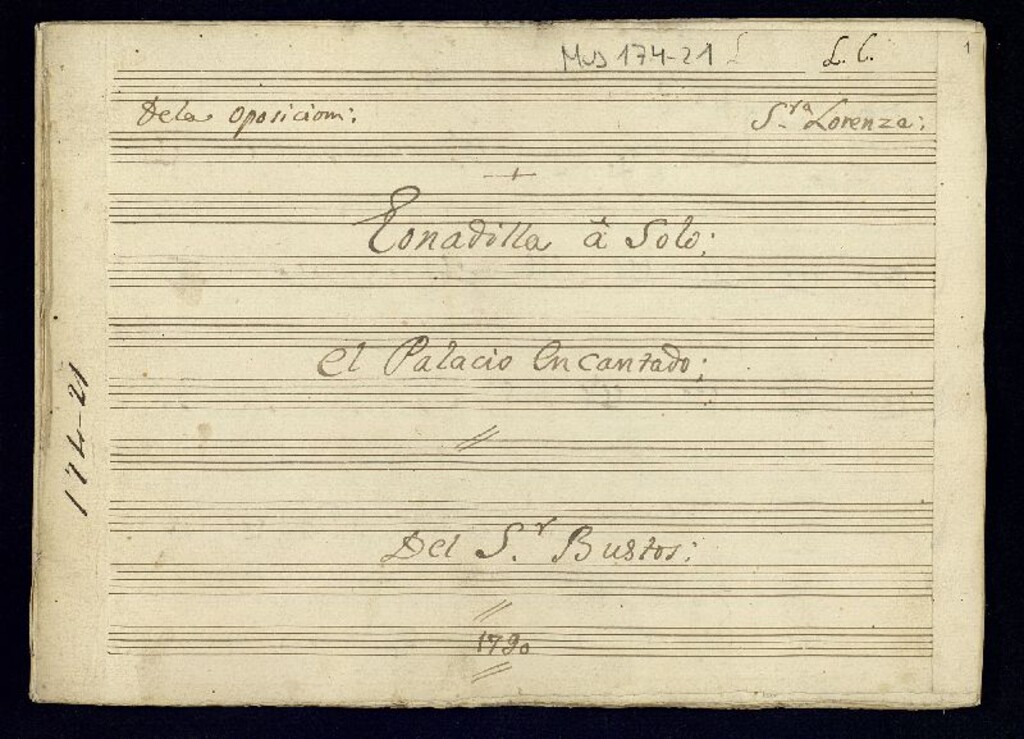 Mus 174-21 L. C. 1
De la oposicion: S.ra Lorenza:
Tonadilla â Solo;
el Palacio encantado;
Del S.r Bustos:
1790
174-21